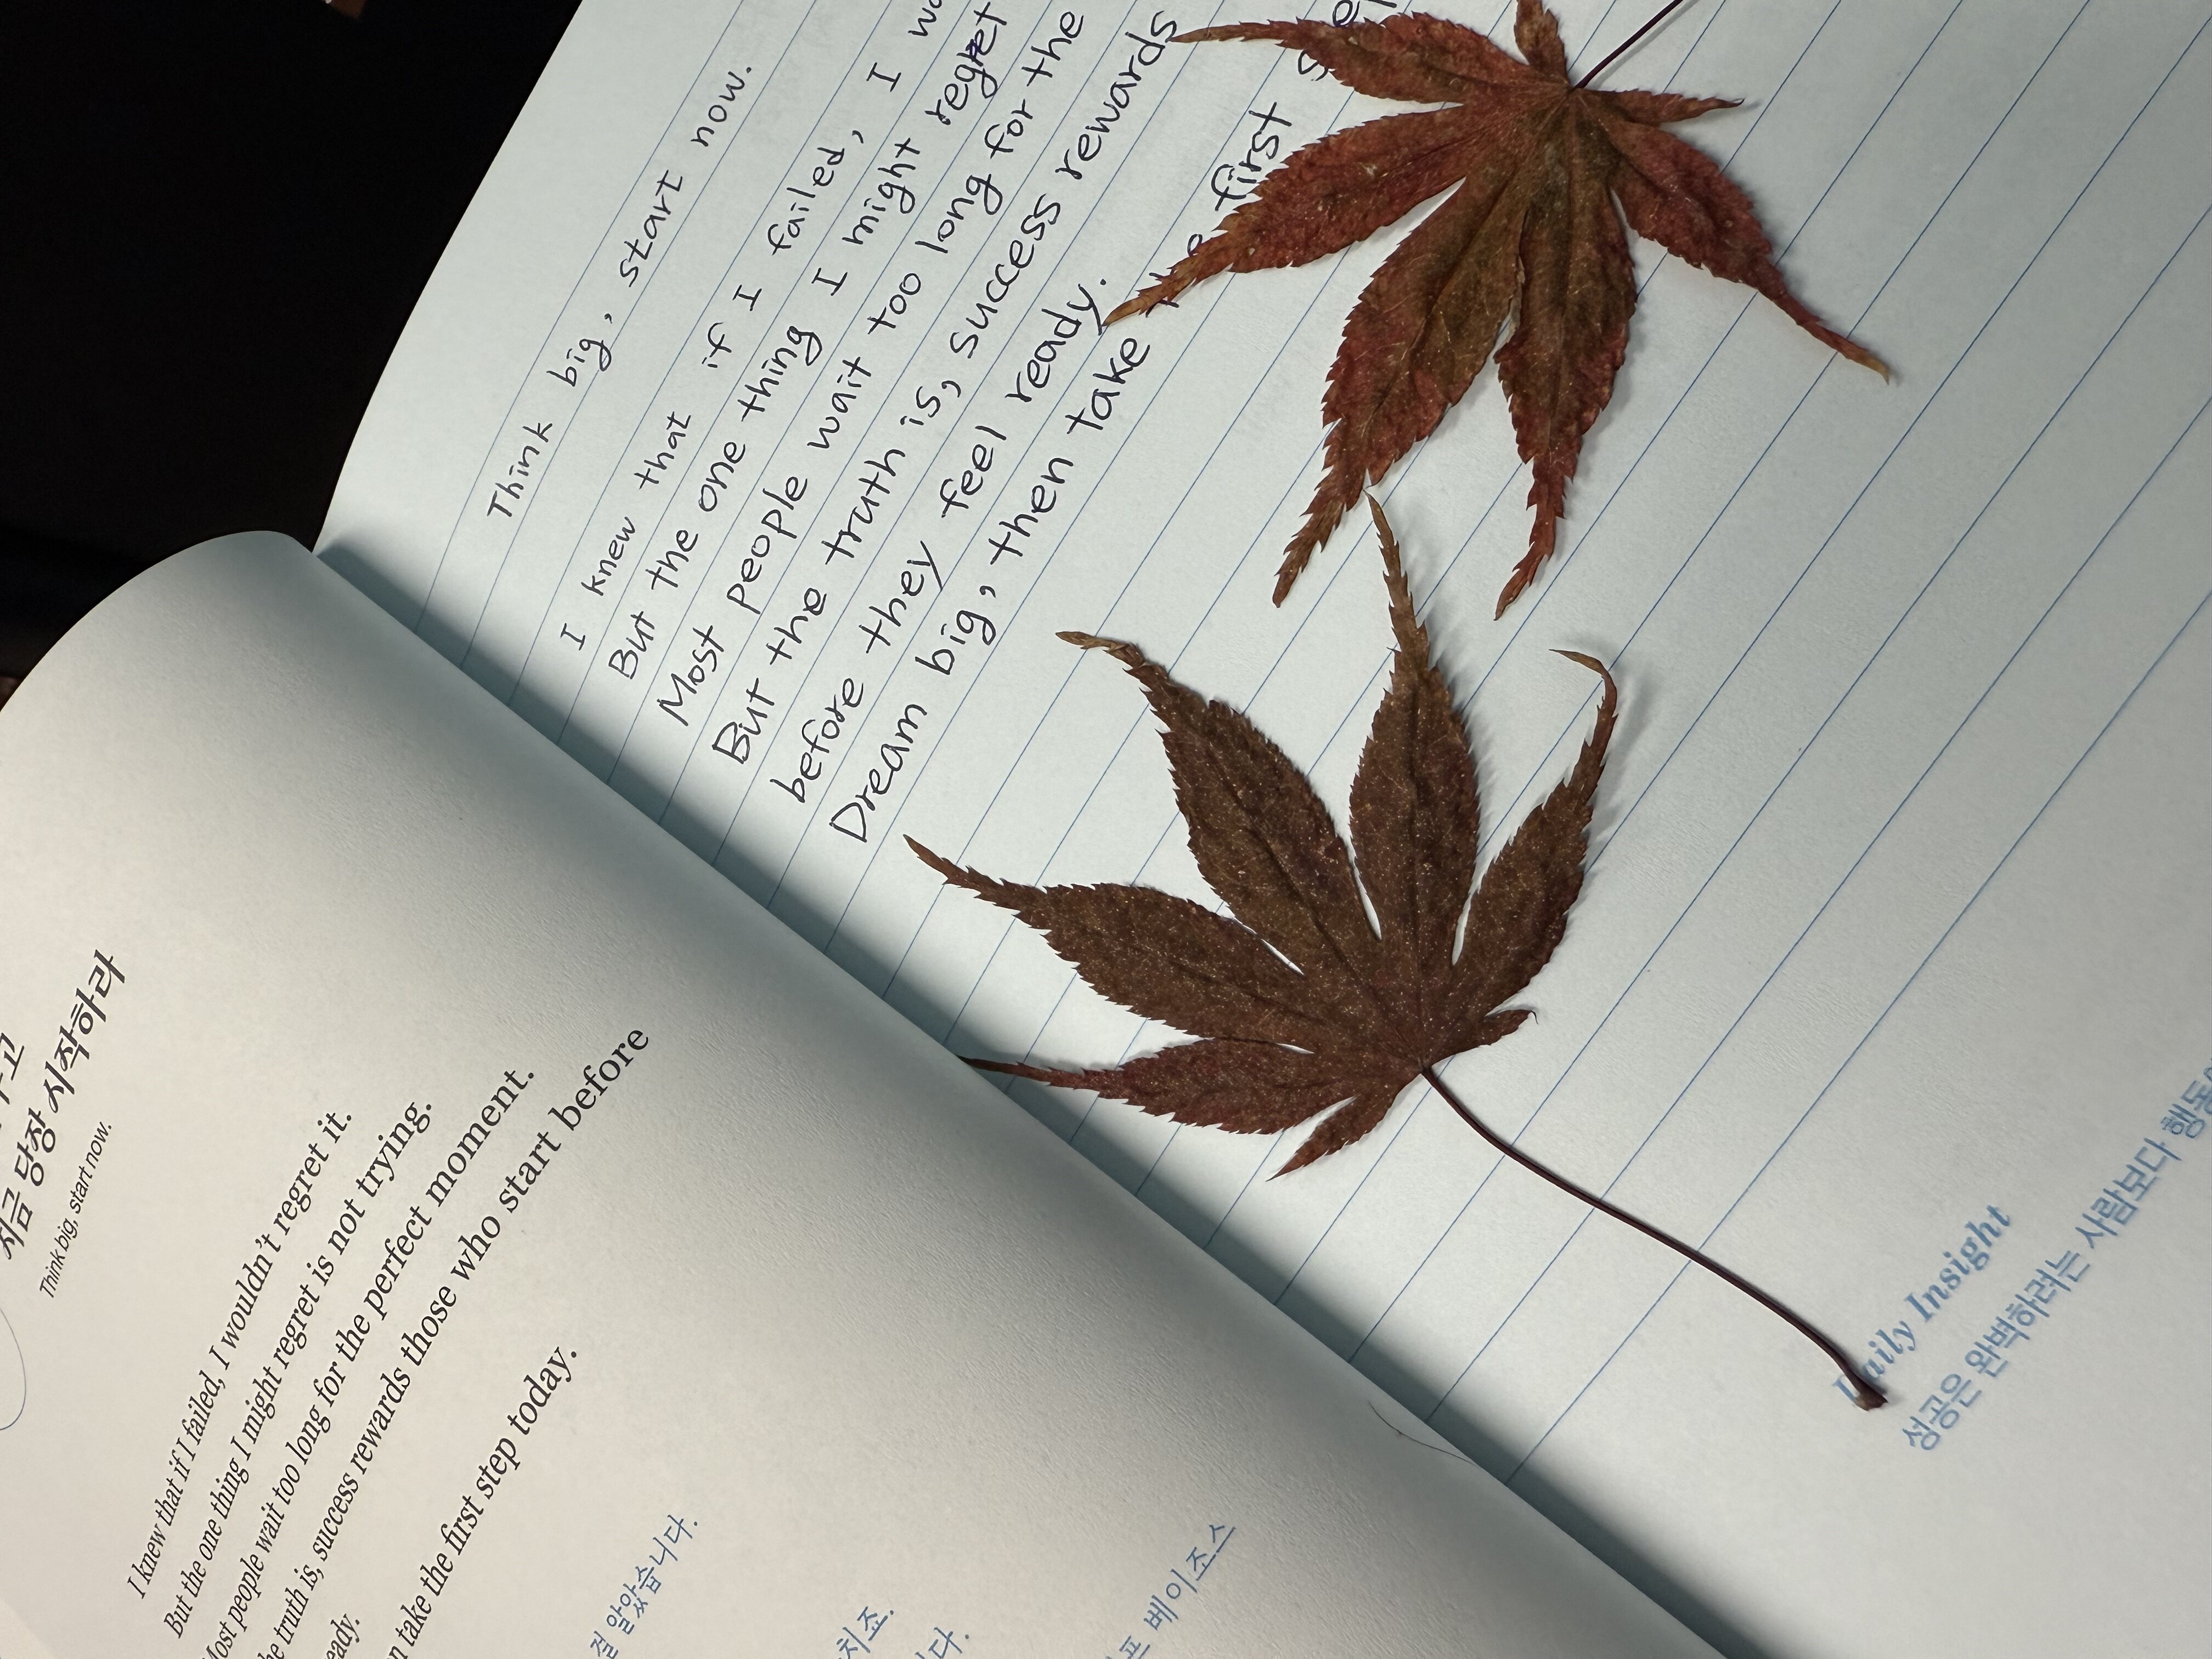 지금 당장 시작하라
Think big, start now.
I knew that if I failed, I wouldn't regret it.
But the one thing I might regret is not trying.
Most people wait too long for the perfect moment.
the truth is, success rewards those who start before
take the first step today.
걸 알았습니다.
베이조스
Think big, start now.
I knew that if I failed, I
But the one thing I might regret
Most people wait too long for the
But the truth is, success rewards
before they feel ready.
Dream big, then take first
Daily Insight
성공은 완벽하려는 사람보다